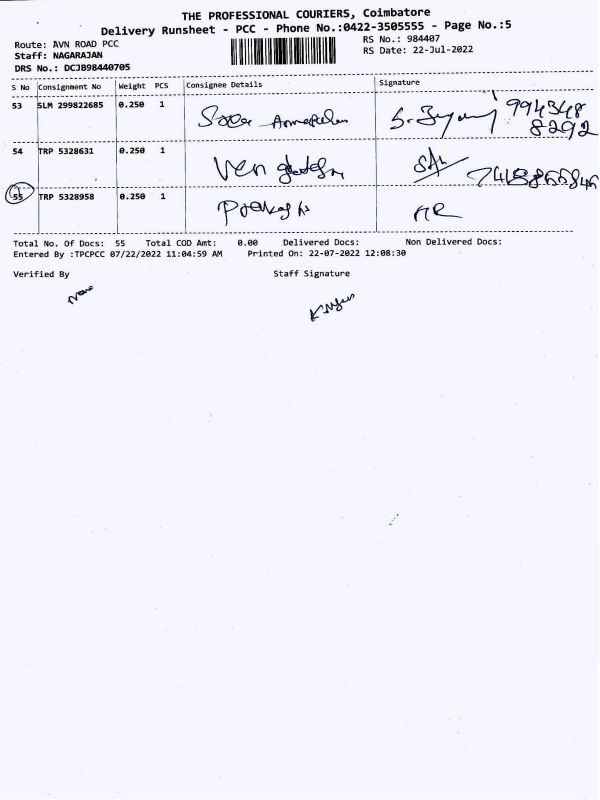 THE PROFESSIONAL COURIERS, Coimbatore
Delivery Runsheet - PCC - Phone No.:0422-3505555 - Page No.:5
Route: AVN ROAD PCC
RS No.: 984407
Staff: NAGARAJAN
RS Date: 22-Jul-2022
DRS No.: DCJB98440705
S No Consignment No Weight PCS Consignee Details Signature
53 SLM 299822685 0.250 1 994348
8292
54 TRP 5328631 0.250 1
55 TRP 5328958 0.250 1 Prakash
Total No. Of Docs: 55 Total COD Amt: 0.00 Delivered Docs: Non Delivered Docs:
Entered By :TPCPCC 07/22/2022 11:04:59 AM Printed On: 22-07-2022 12:08:30
Verified By Staff Signature